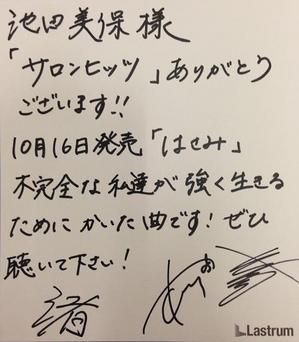 池田美保様
「サロンヒッツ」ありがとう
ございます!!
10月16日発売「はせみ」
不完全な私達が強く生きる
ためにかいた曲です！ぜひ
聴いて下さい！
渚
Lastrum